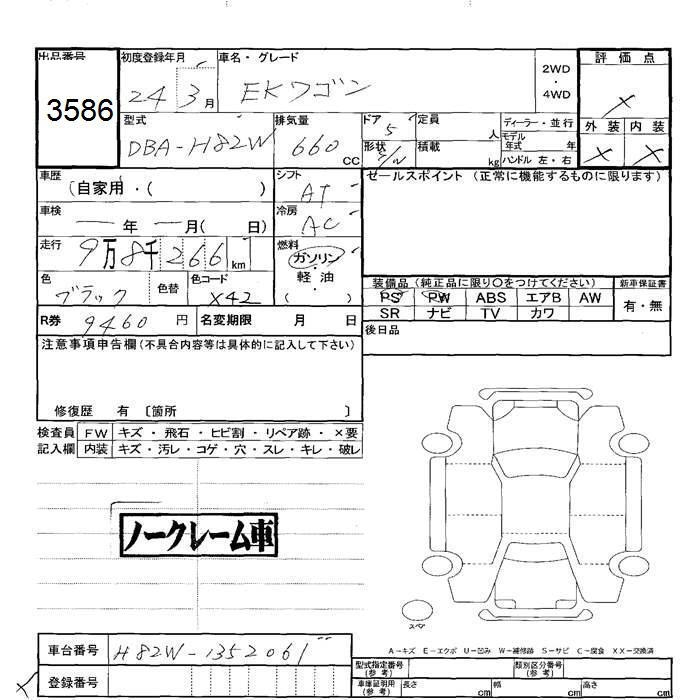 出品番号 初度登録年月 車名・グレード 2WD 評価点
3586 24 3月 EKワゴン ・ 4WD ×
型式 排気量 ドア 定員 ディーラー・並行 外装 内装
DBA-H82W 660 CC 5 人 モデル年式 年 × ×
形状 5/W 積載 kg ハンドル 左・右
車歴 シフト セールスポイント (正常に機能するものに限ります)
(自家用・( ) AT
車検 冷房
— 年 — 月( 日) AC
走行 燃料
9万8千266km ガソリン・軽油
色 色替 色コード 装備品 (純正品に限り○をつけてください) 新車保証書
ブラック X42 PS PW ABS エアB AW 有・無
SR ナビ TV カワ
R券 9460円 名変期限 月 日 後日品
注意事項申告欄(不具合内容等は具体的に記入して下さい)
修復歴 有 〔箇所 〕
検査員 FW キズ・飛石・ヒビ割・リペア跡・×要
記入欄 内装 キズ・汚レ・コゲ・穴・スレ・キレ・破レ
ノークレーム車
スペア
A-キズ E-エクボ U-凹み W-補修跡 S-サビ C-腐食 XX-交換済
車台番号 H82W-1352061 型式指定番号(参考) 類別区分番号(参考)
登録番号 車庫証明用(参考) 長さ cm 幅 cm 高さ cm
×